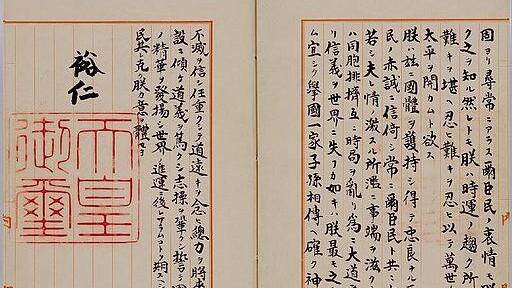 固ヨリ尋常ニアラス爾臣民ノ衷情モ
ク之ヲ知ル然レトモ朕ハ時運ノ趨ク所
難キヲ堪ヘ忍ヒ難キヲ忍ヒ以テ萬世
太平ヲ開カムト欲ス
朕ハ茲ニ國體ヲ護持シ得テ忠良ナル
民ノ赤誠ニ信倚シ常ニ爾臣民ト共ニ
若シ夫レ情ノ激スル所濫ニ事端ヲ滋ク
ハ同胞排擠互ニ時局ヲ亂リ爲ニ大道
リ信義ヲ世界ニ失フカ如キハ朕最モ之
ム宜シク擧國一家子孫相傳ヘ確ク神
不滅ヲ信シ任重クシテ道遠キヲ念ヒ總力ヲ將來
設ニ傾ケ道義ヲ篤クシ志操ヲ鞏クシ誓テ國
ノ精華ヲ發揚シ世界ノ進運ニ後レサラムコトヲ期スヘシ
民其レ克ク朕カ意ヲ體セヨ
裕仁
天皇
御璽